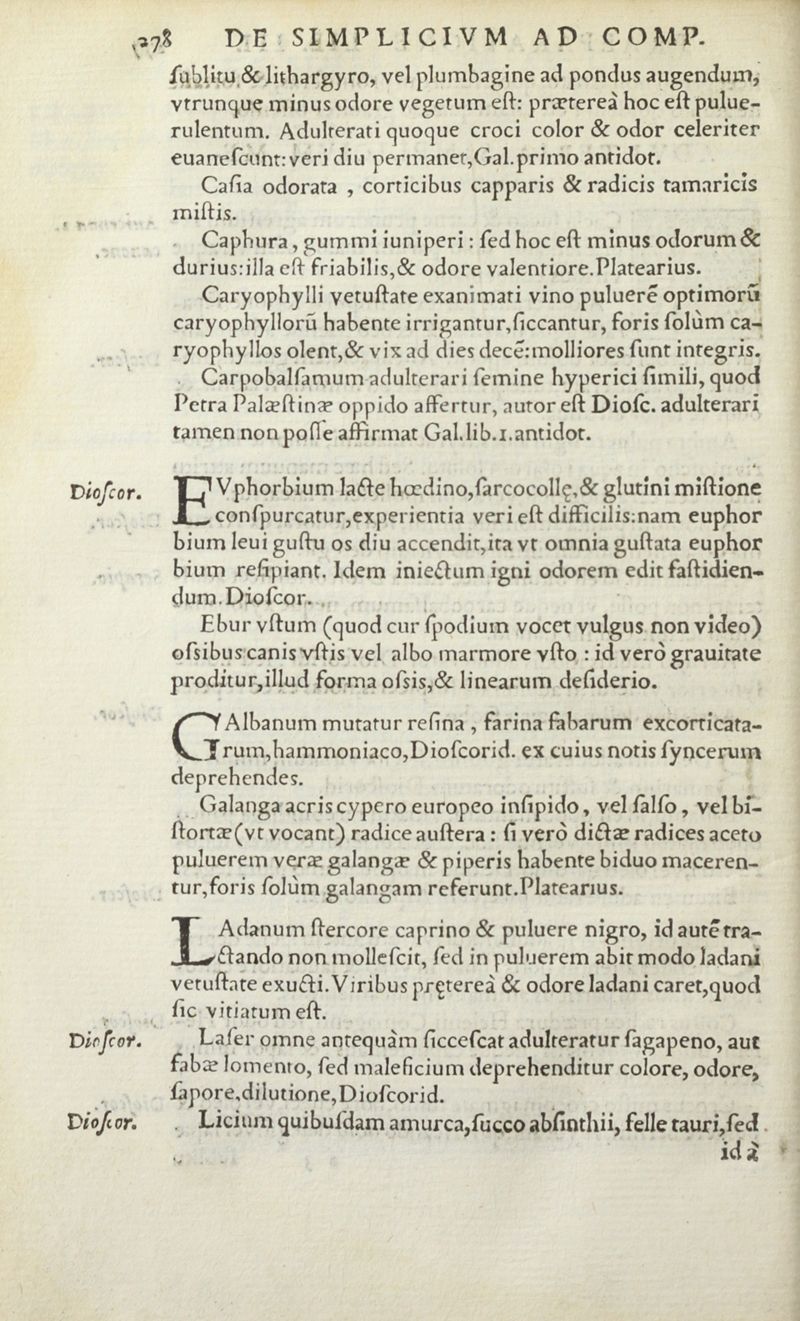 278 DE SIMPLICIVM AD COMP.
ſublitu & lithargyro, vel plumbagine ad pondus augendum,
vtrunque minus odore vegetum eſt: præterea hoc eſt pulue-
rulentum. Adulterati quoque croci color & odor celeriter
euaneſcunt: veri diu permanet, Gal. primo antidot.
Caſia odorata , corticibus capparis & radicis tamaricis
miſtis.
Caphura , gummi iuniperi : ſed hoc eſt minus odorum &
durius: illa eſt friabilis, & odore valentiore. Platearius.
Caryophylli vetuſtate exanimati vino puluerē optimorū
caryophyllorū habente irrigantur, ſiccantur, foris ſolùm ca-
ryophyllos olent, & vix ad dies decē: molliores ſunt integris.
Carpobalſamum adulterari ſemine hyperici ſimili, quod
Petra Palæſtinæ oppido affertur, autor eſt Dioſc. adulterari
tamen non poſſe affirmat Gal. lib. 1. antidot.
Dioſcor. EVphorbium lacte hœdino, ſarcocollę, & glutini miſtione
conſpurcatur, experientia veri eſt difficilis: nam euphor
bium leui guſtu os diu accendit, ita vt omnia guſtata euphor
bium reſipiant. Idem iniectum igni odorem edit faſtidien-
dum. Dioſcor.
Ebur vſtum (quod cur ſpodium vocet vulgus non video)
oſsibus canis vſtis vel albo marmore vſto : id verò grauitate
proditur, illud forma oſsis, & linearum deſiderio.
GAlbanum mutatur reſina , farina fabarum excorticata-
rum, hammoniaco, Dioſcorid. ex cuius notis ſyncerum
deprehendes.
Galanga acris cypero europeo inſipido, vel ſalſo, vel bi-
ſtortæ (vt vocant) radice auſtera : ſi verò dictæ radices aceto
puluerem veræ galangæ & piperis habente biduo maceren-
tur, foris ſolùm galangam referunt. Platearius.
LAdanum ſtercore caprino & puluere nigro, id autē tra-
ctando non molleſcit, ſed in puluerem abit modo ladani
vetuſtate exucti. Viribus pręterea & odore ladani caret, quod
ſic vitiatum eſt.
Dioſcor. Laſer omne antequàm ſicceſcat adulteratur ſagapeno, aut
fabæ lomento, ſed maleficium deprehenditur colore, odore,
ſapore, dilutione, Dioſcorid.
Dioſcor. Licium quibuſdam amurca, ſucco abſinthii, felle tauri, ſed
id à